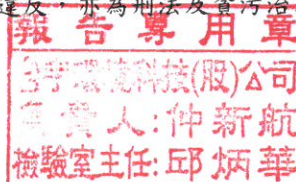 違反，亦為刑法及貪污治
報告專用章
科技(股)公司
負責人:仲新航
檢驗室主任:邱炳華